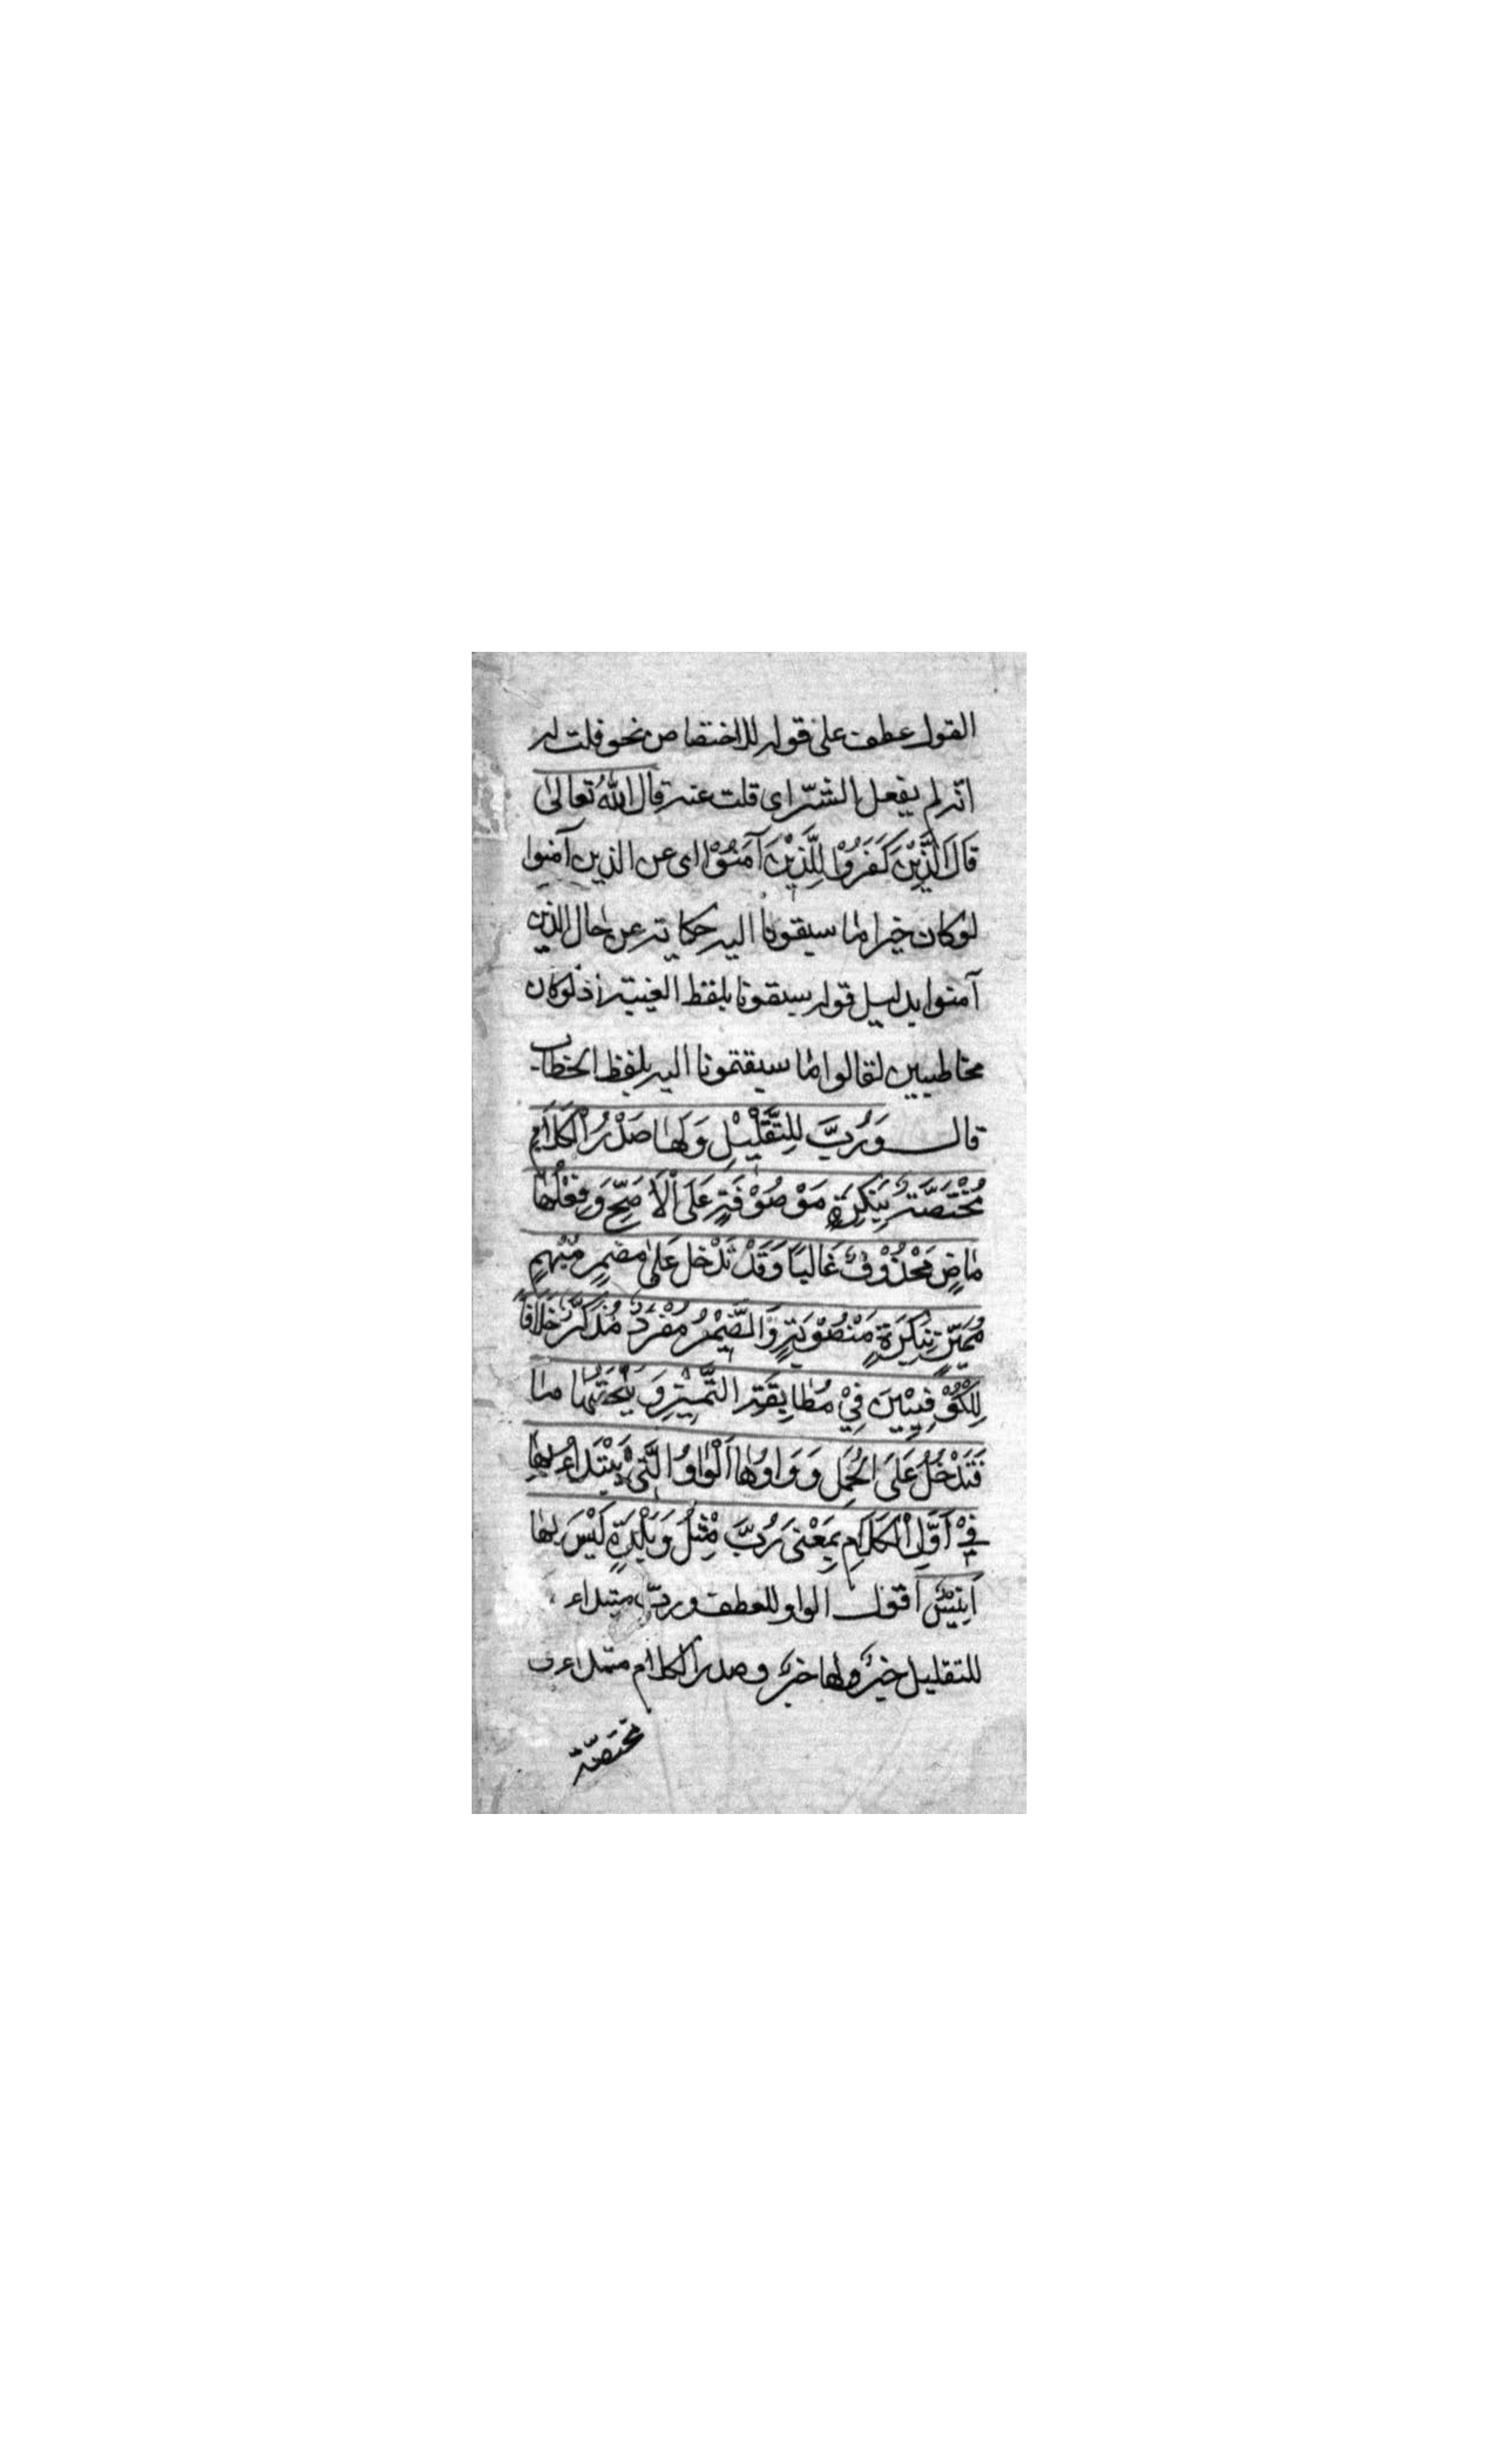 القول عطف على قوله للاختصاص نحو قلت له
انه لم يفعل الشرّ اى قلت عنه قال اللهُ تعالىٰ
قَالَ الَّذِيْنَ كَفَرُوْا لِلَّذِيْنَ آمَنُوْا اى عن الذين آمنوا
لو كان خيرا ما سبقونا اليه حكاية عن حال الذين
آمنوا بدليل قوله سبقونا بلفظ الغيبة اذ لو كان
مخاطبين لقالوا ما سبقتمونا اليه بلفظ الخطاب
قال وَرُبَّ لِلتَّقْلِيْلِ وَلَهَا صَدْرُ الْكَلَامِ
مُخْتَصَّةٌ بِنَكِرَةٍ مَوْصُوْفَةٍ عَلَى الْاَصَحِّ وَفِعْلُهَا
مَاضٍ مَحْذُوْفٌ غَالِبًا وَقَدْ تَدْخُلُ عَلىٰ مضمرٍ مُبْهَمٍ
مُمَيَّزٍ بِنَكِرَةٍ مَنْصُوْبَةٍ وَالضَّمِيْرُ مُفْرَدٌ مُذَكَّرٌ خِلَافًا
لِلْكُوْفِيِّيْنَ فِيْ مُطَابَقَةِ التَّمْيِيْزِ وَيَلْحَقُهَا مَا
فَتَدْخُلُ عَلَى الْجُمَلِ وَوَاوُهَا اَلْوَاوُ الَّتِيْ يُبْتَداءُ بِهَا
فِيْ اَوَّلِ الْكَلَامِ بِمَعْنىٰ رُبَّ مِثْلُ وَبَلْدَةٍ لَيْسَ بِهَا
اَنِيْسٌ اقول الواو للعطف وربّ مبتداء
للتقليل خبرٌ ولها خبرٌ وصدر الكلام مبتداء
مختصّة